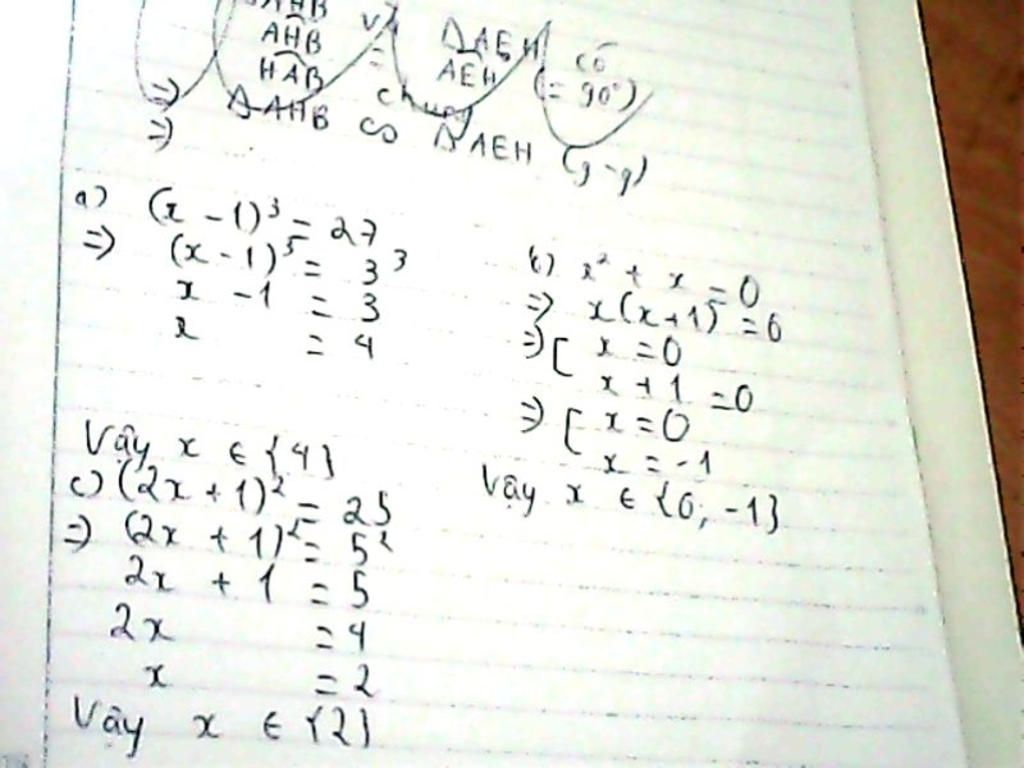 ΔAHB và ΔAEH có
AHB = AEH (= 90°)
HAB chung
=> ΔAHB ∽ ΔAEH (g-g)
=>
a) (x - 1)³ = 27
=> (x - 1)³ = 3³
x - 1 = 3
x = 4
Vậy x ∈ {4}
b) x² + x = 0
=> x(x+1) = 0
=> [ x = 0
x + 1 = 0
=> [ x = 0
x = -1
Vậy x ∈ {0; -1}
c) (2x + 1)² = 25
=> (2x + 1)² = 5²
2x + 1 = 5
2x = 4
x = 2
Vậy x ∈ {2}